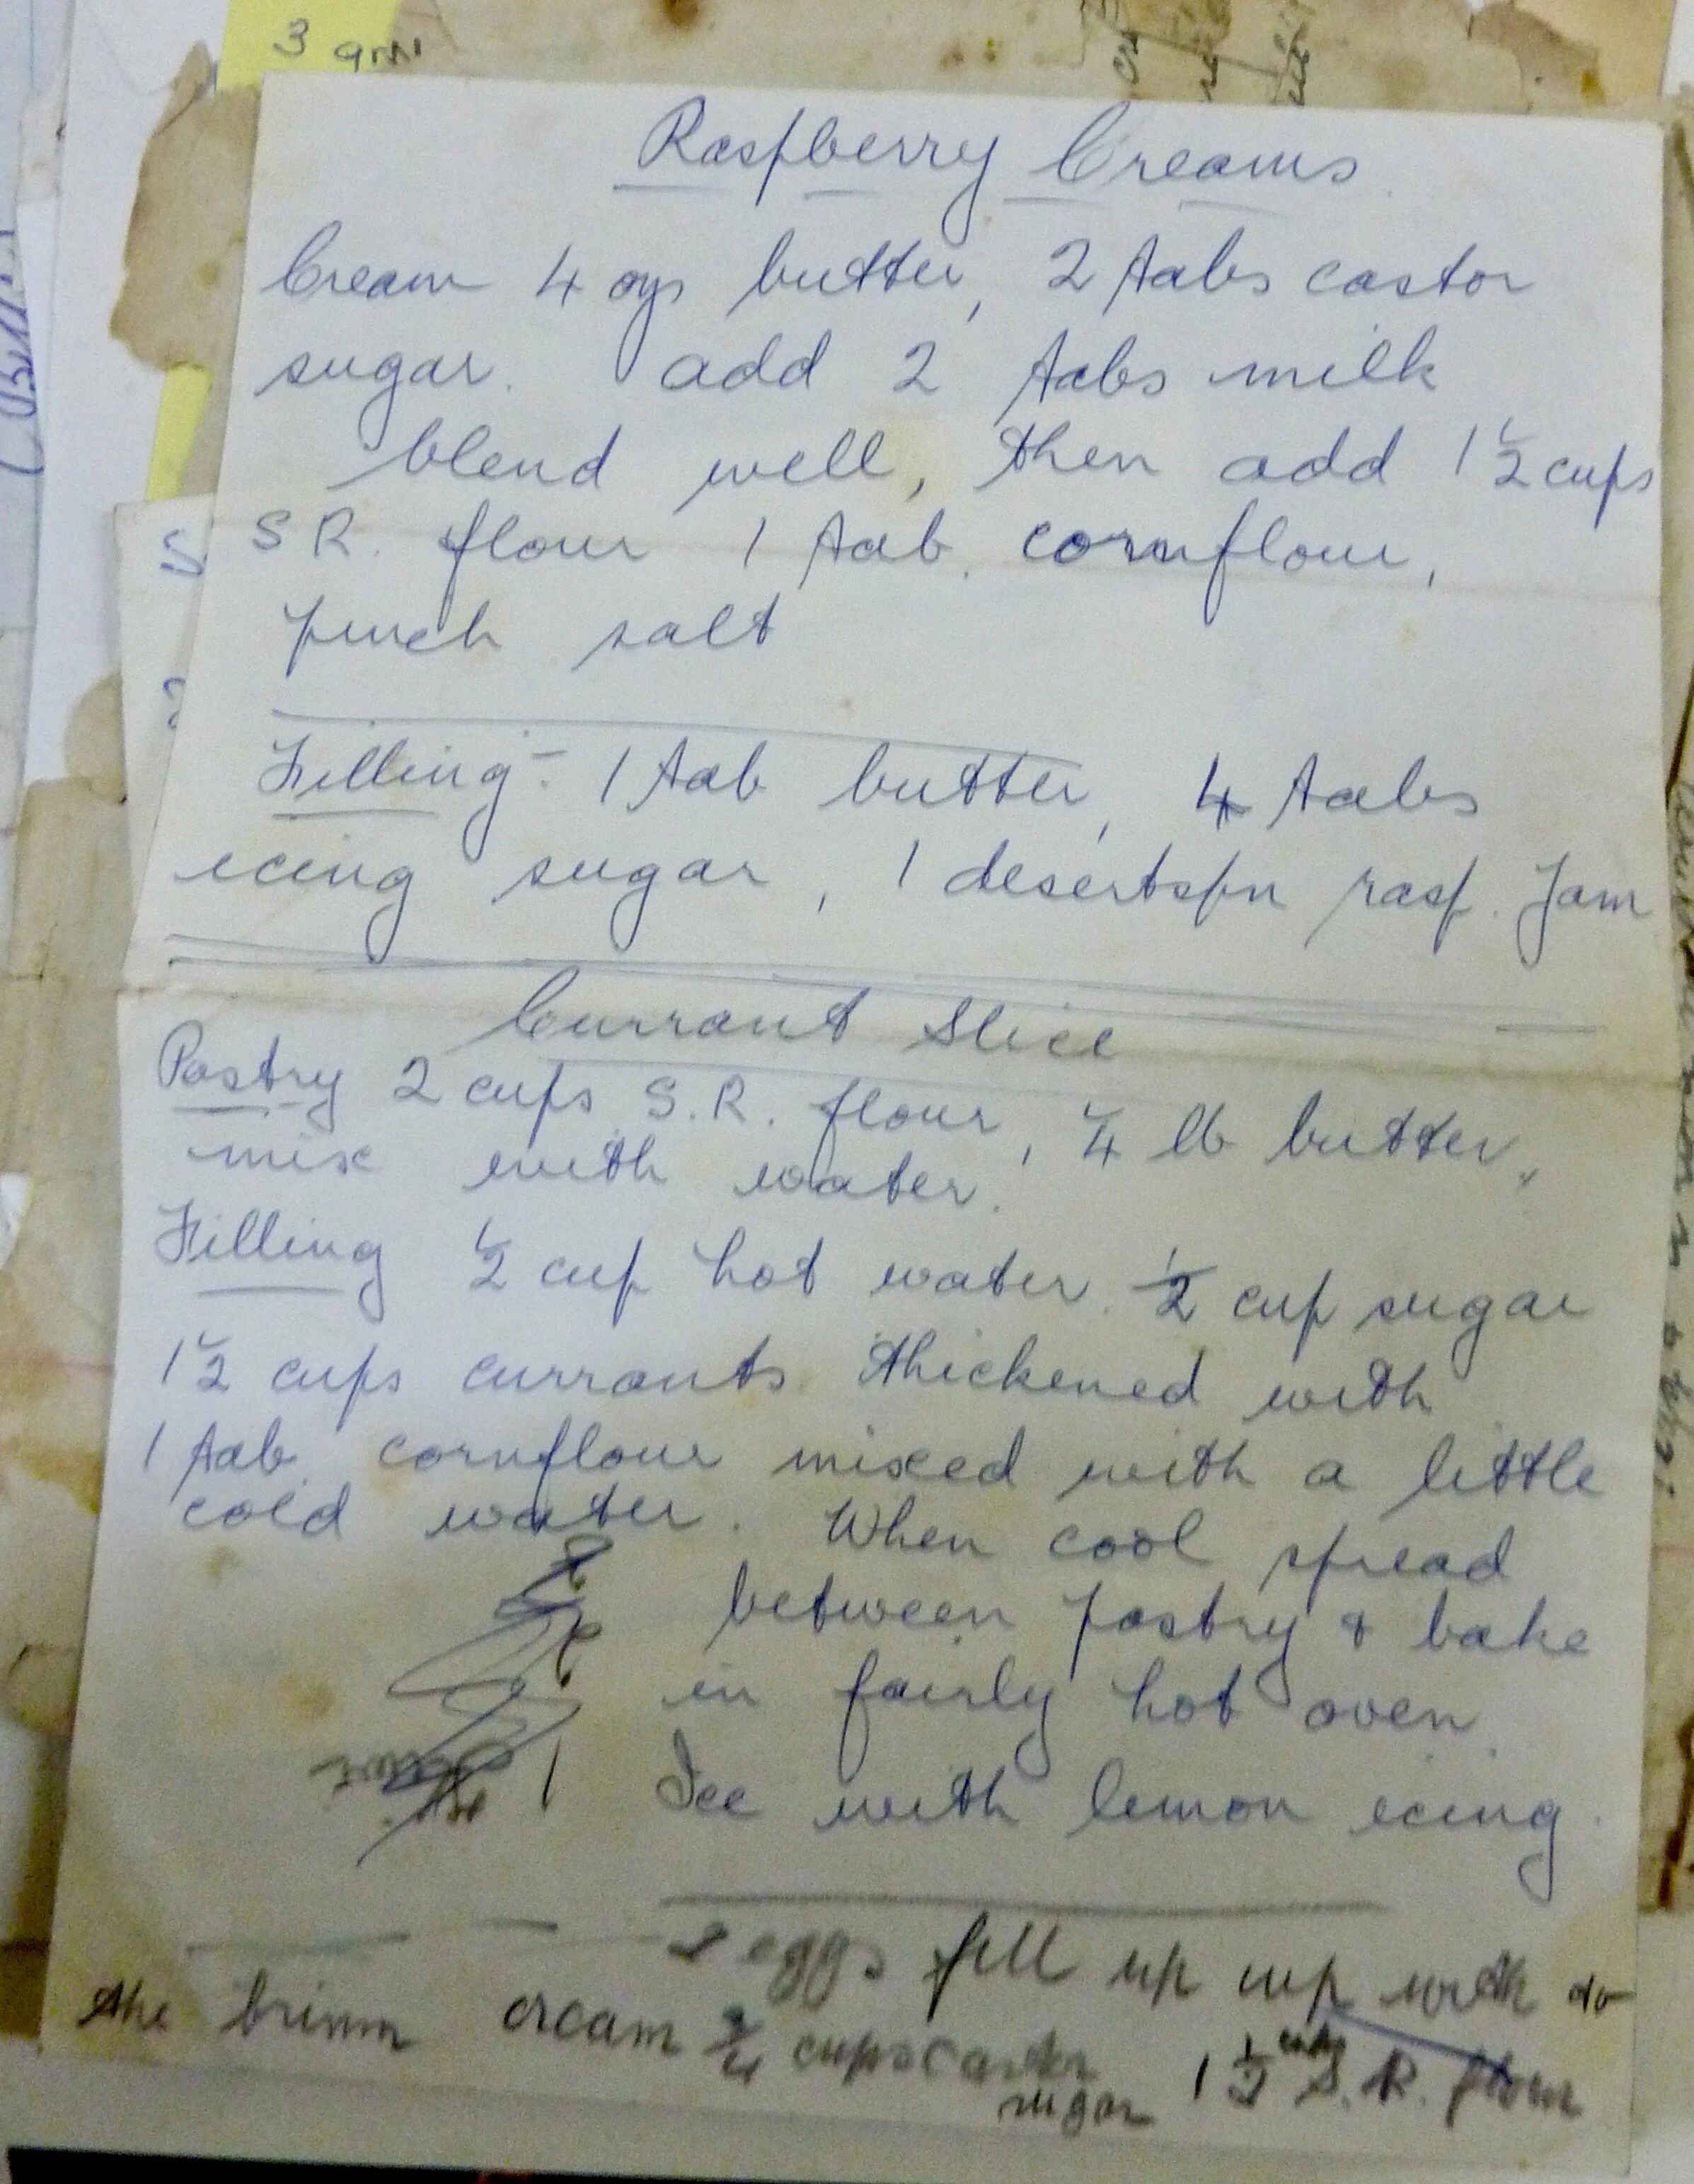 3
Raspberry Creams
Cream 4 ozs butter, 2 tabs castor
sugar. add 2 tabs milk
blend well, then add 1 1/2 cups
S R. flour 1 tab. cornflour,
pinch salt
Filling:- 1 tab butter, 4 tabs
icing sugar, 1 desertspn rasp. Jam
Currant Slice
Pastry 2 cups S.R. flour, 1/4 lb butter,
mix with water.
Filling 1/2 cup hot water. 1/2 cup sugar
1 1/2 cups currants thickened with
1 tab. cornflour mixed with a little
cold water. When cool spread
between pastry & bake
in fairly hot oven.
1 Ice with lemon icing.
2 eggs fill up cup with to
the brimm cream 3/4 cups castor
sugar 1 1/2 cups S.R. flour